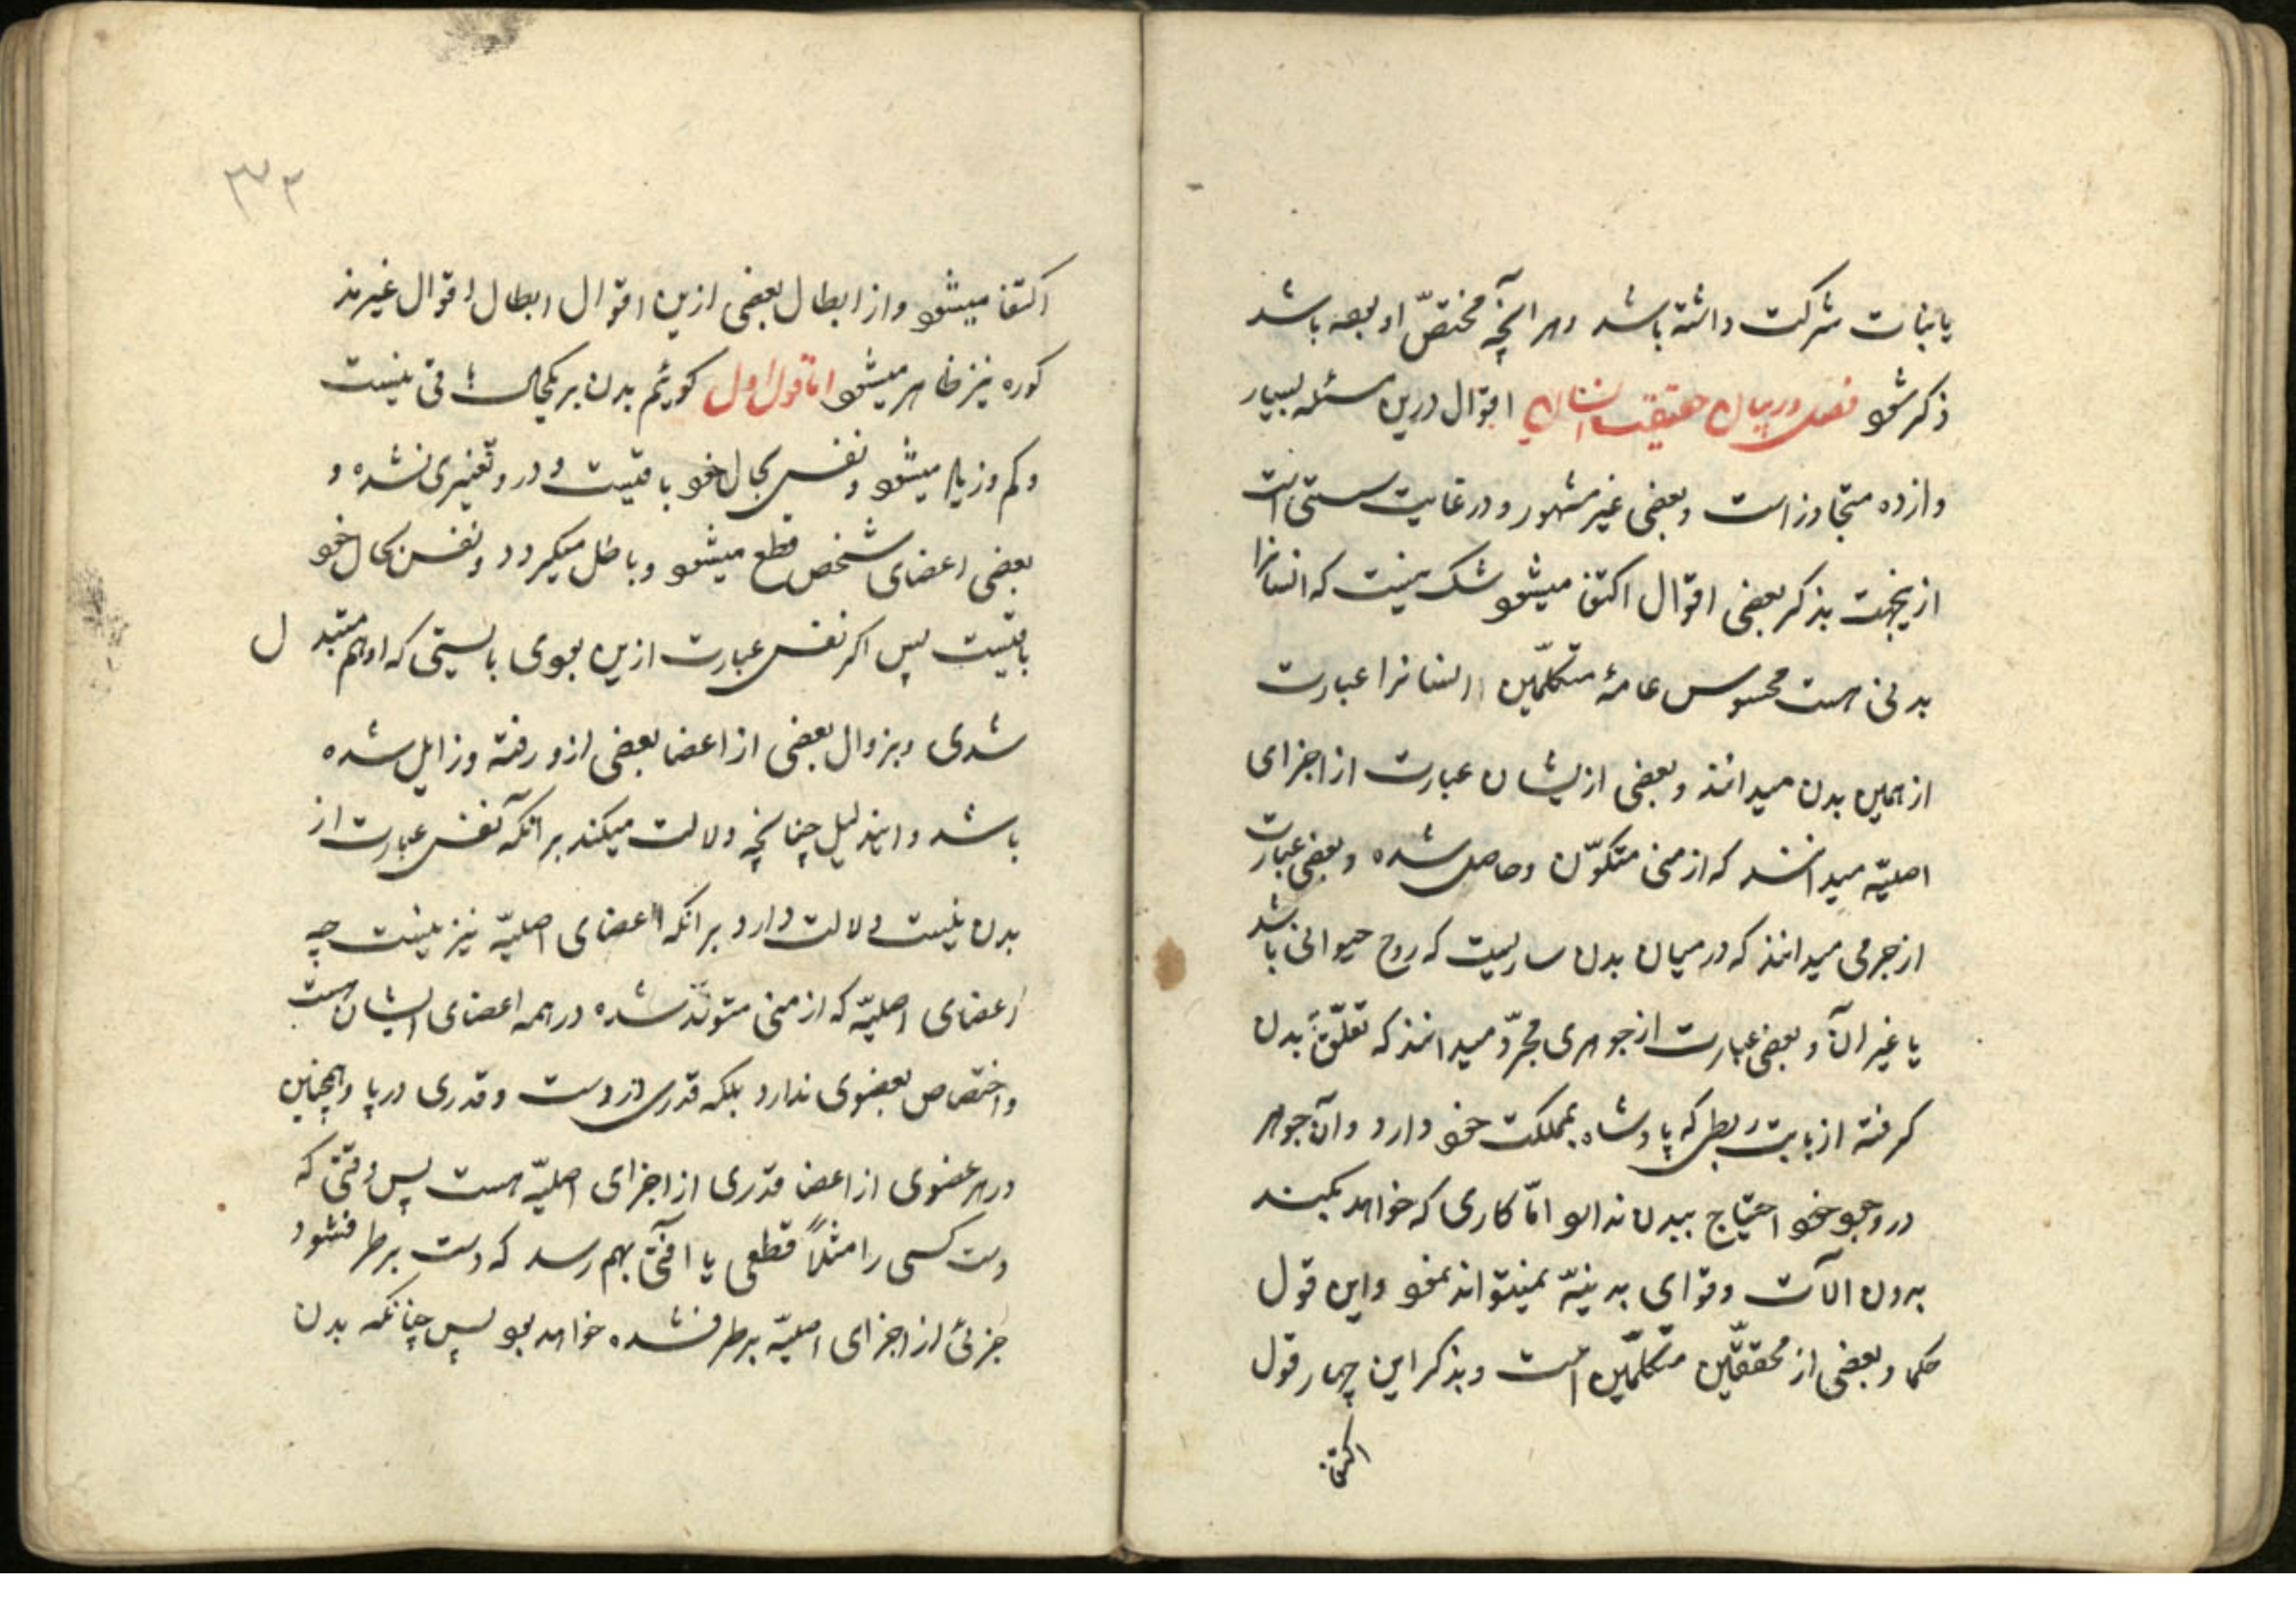 یا نبات شرکت داشته باشد و هر آنچه مختصّ او بوده باشد
ذکر شود فصل در بیان حقیقت انسان اقوال درین مسئله بسیار
و از ده متجاوز است و بعضی غیر مشهور و در غایت سستی است
ازینجهت بذکر بعضی اقوال اکتفا میشود شک نیست که انسانرا
بدنی هست محسوس عامهٔ متکلّمین انسانرا عبارت
از همین بدن میدانند و بعضی ازیشان عبارت از اجزای
اصلیّه میدانند که از منی متکوّن و حاصل شده و بعضی عبارت
از جرمی میدانند که در میان بدن ساریست که روح حیوانی باشد
یا غیر آن و بعضی عبارت از جوهری مجرّد میدانند که تعلّق ببدن
کرفته از بابت ربطی که پادشاه بمملکت خود دارد و آن جوهر
در وجود خود احتیاج ببدن ندارد امّا کاری که خواهد بکند
بدون آلات و قوای بدنیّه نمیتواند نمود و این قول
حکما و بعضی از محققّین متکلّمین است و بذکر این چهار قول
اکتفا
۳۲
اکتفا میشود و از ابطال بعضی ازین اقوال ابطال اقوال غیر مذ
کوره نیز ظاهر میشود امّا قول اول کوئیم بدن بر یکحال باقی نیست
و کم و زیاد میشود و نفس بحال خود باقیست و در و تغییری نشده و
بعضی اعضای شخص قطع میشود و باطل میکردد و نفس بحال خود
باقیست پس اکر نفس عبارت ازین بودی بایستی که او هم متبدل
شدی و بزوال بعضی از اعضا بعضی ازو رفته و زایل شده
باشد و ایندلیل چنانچه دلالت میکند بر آنکه نفس عبارت از
بدن نیست دلالت دارد بر آنکه اعضای اصلیّه نیز نیست چه
اعضای اصلیّه که از منی متولّد شده در همه اعضای ایشان هست
و اختصاص بعضوی ندارد بلکه قدری در دست و قدری در پا و همچنین
در هر عضوی از اعضا قدری از اجزای اصلیّه هست پس وقتی که
دست کسی را مثلاً قطعی یا آفتی بهم رسد که دست برطرف شود
جزئی از اجزای اصلیّه برطرف شده خواهد بود پس چنانکه بدن